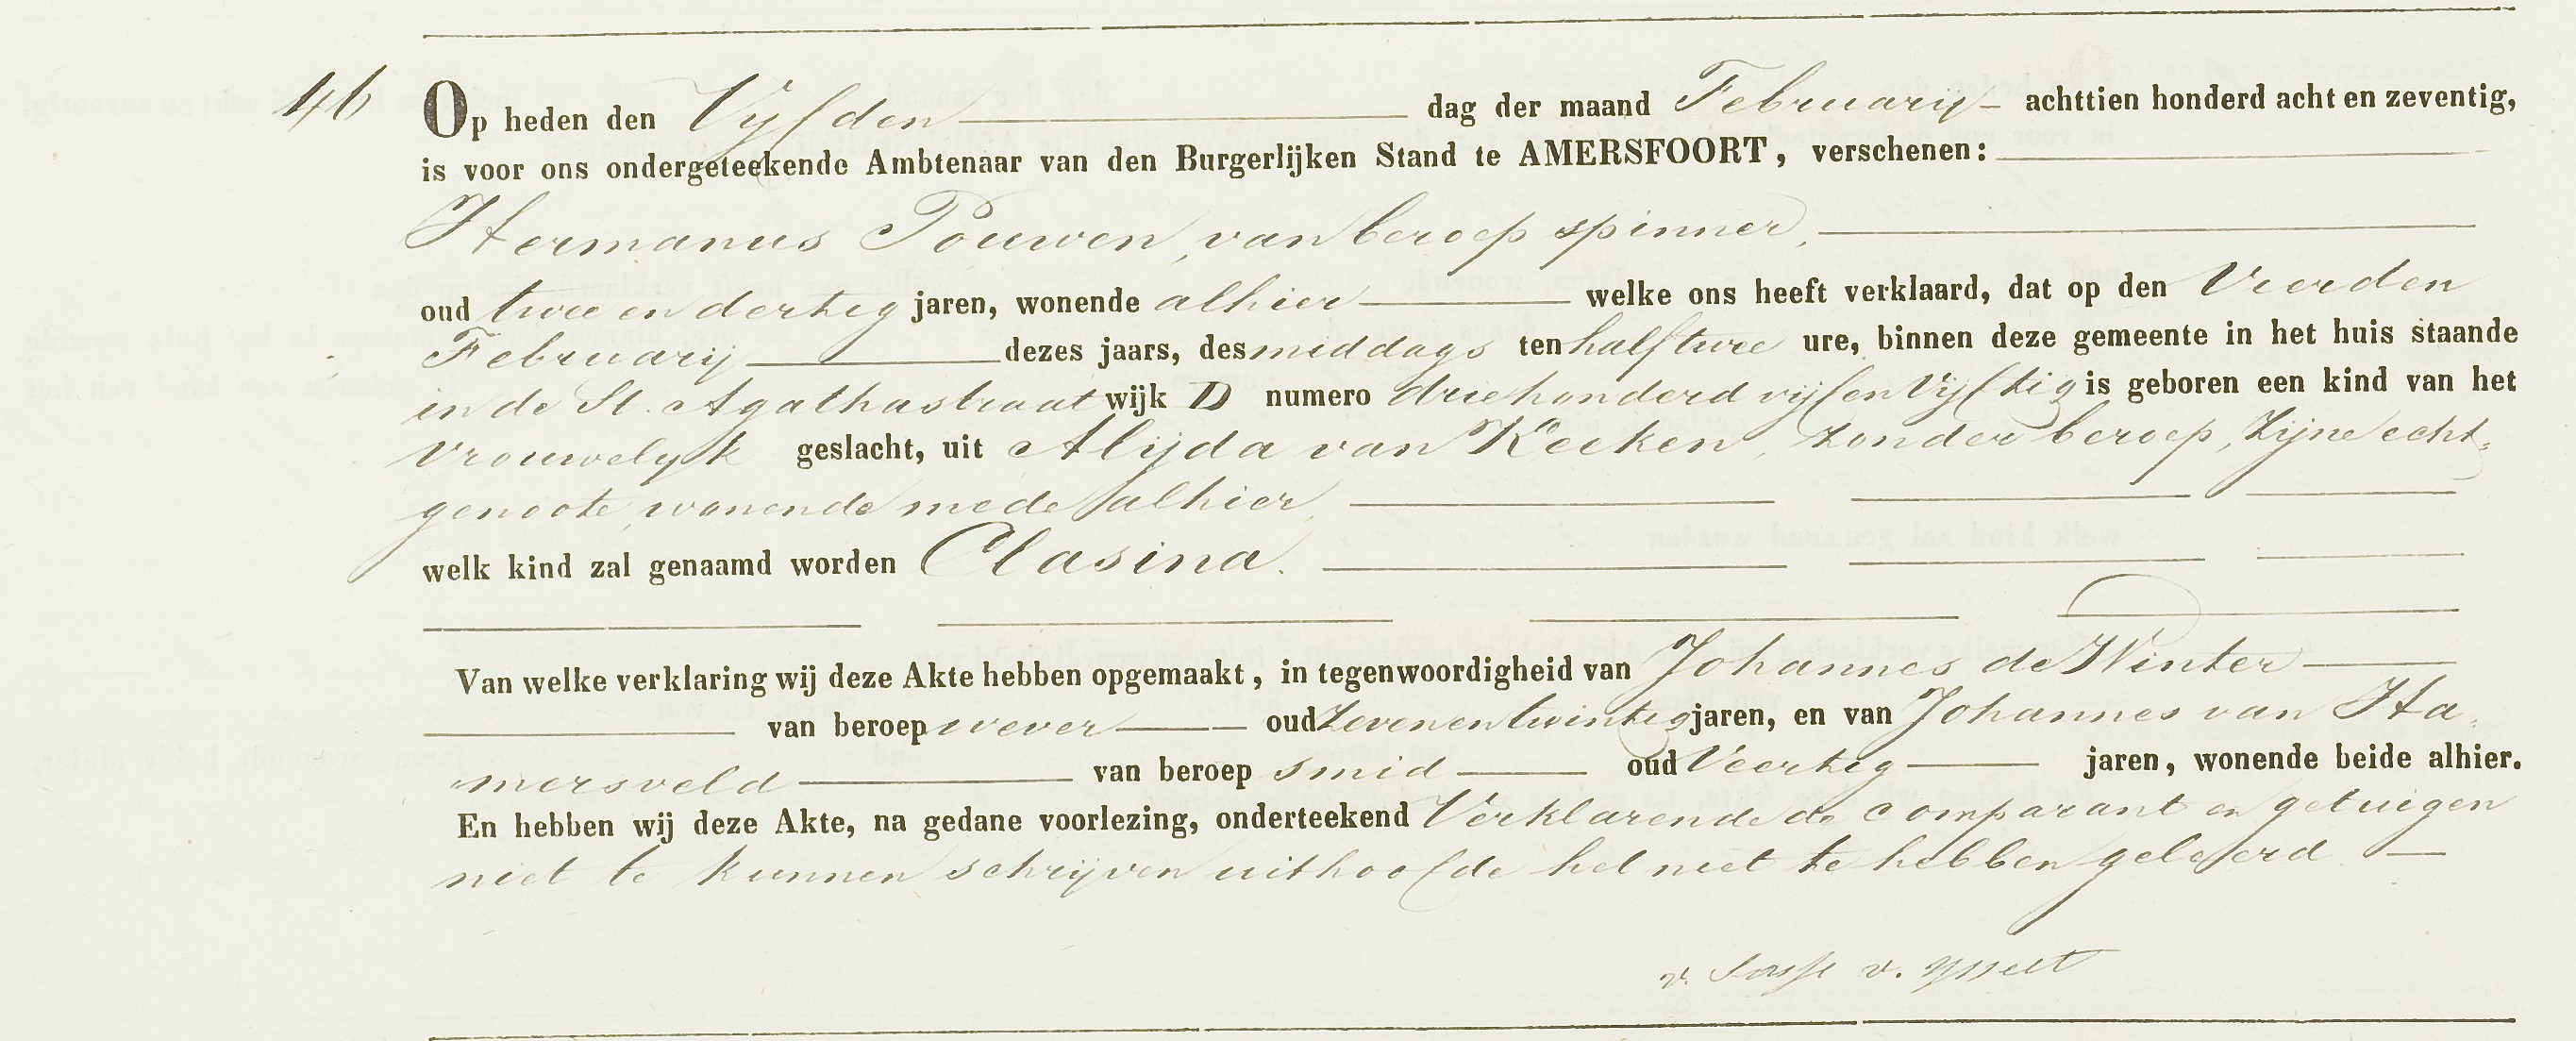 46 Op heden den Vyfden dag der maand February achttien honderd acht en zeventig,
is voor ons ondergeteekende Ambtenaar van den Burgerlijken Stand te AMERSFOORT, verschenen:
Hermanus Pouwen, van beroep spinner,
oud twee en dertig jaren, wonende alhier welke ons heeft verklaard, dat op den Vierden
February dezes jaars, des middags ten half twee ure, binnen deze gemeente in het huis staande
in de St. Agathastraat wijk D numero driehonderd vijfenVijftig is geboren een kind van het
Vrouwelyk geslacht, uit Alijda van Keeken, zonder beroep, Zijne echt-
genoote, wonende mede alhier,
welk kind zal genaamd worden Clasina.
Van welke verklaring wij deze Akte hebben opgemaakt, in tegenwoordigheid van Johannes de Winter
van beroep wever oud Zevenentwintig jaren, en van Johannes van Ha-
mersveld van beroep smid oud Veertig jaren, wonende beide alhier.
En hebben wij deze Akte, na gedane voorlezing, onderteekend Verklarende de comparant en getuigen
niet te kunnen schrijven uithoofde het niet te hebben geleerd
v. v.